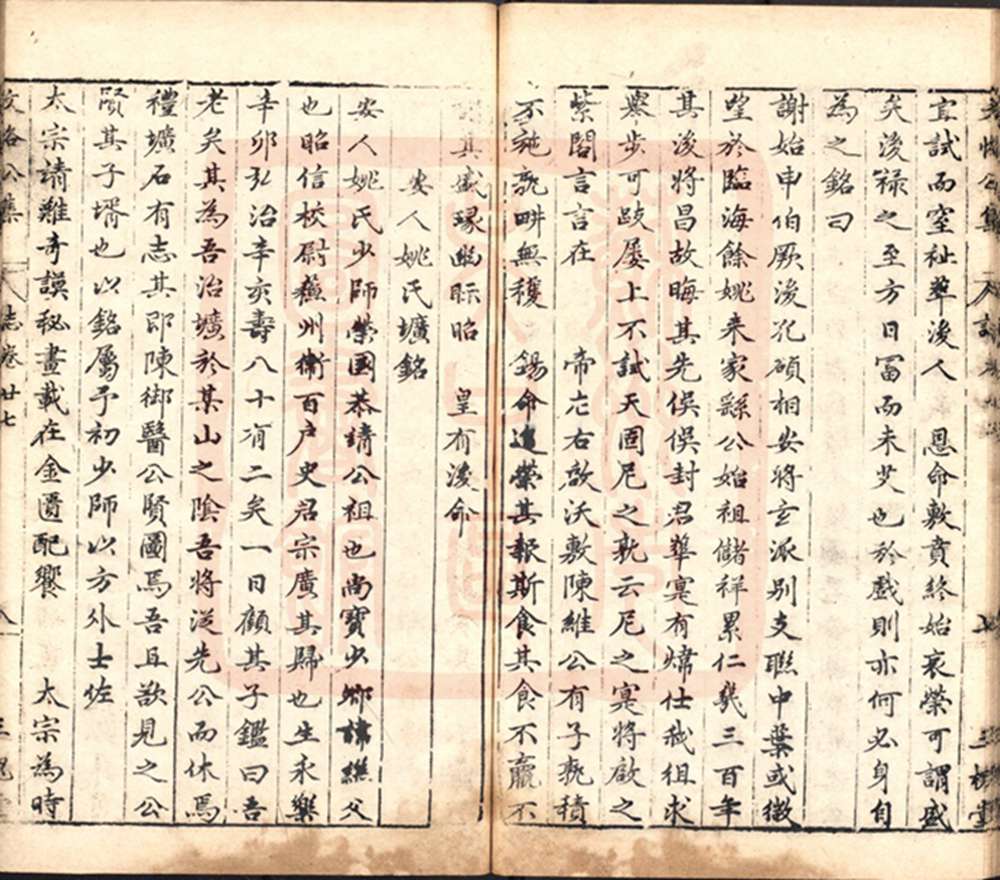 宜試而窒祉萃後人　恩命敷賁終始哀榮可謂盛
矣後祿之至方日冨而未艾也於戲則亦何必身自
為之銘曰
謝始申伯厥後孔碩相安將玄派别支聮中葉或徴
望於臨海餘姚来家繇公始祖儲祥累仁幾三百年
其後將昌故晦其先俁俁封君準寔有煒仕秇徂求
舉步可跂屡上不試天固戹之孰云戹之寔將啟之
紫閣言言在　帝左右啟沃敷陳維公有子孰積
不施孰畊無穫　錫命追榮其報斯食其食不贏不
其盛瑑幽眎昭　皇有後命
安人姚氏壙銘
安人姚氏少師榮國恭靖公祖也尚寶少卿諱繼父
也昭信校尉蘇州衛百户史君宗廣其歸也生永樂
辛卯弘治辛亥壽八十有二矣一日顧其子鑑曰吾
老矣其為吾治壙於某山之陰吾將從先公而休焉
禮壙石有志其卽陳御醫公賢圖焉吾且欲見之公
賢其子壻也以銘屬予初少師以方外士佐
太宗靖難竒謨秘畫載在金匱配饗　太宗為時
文恪公集　志卷廿七　八　三槐堂